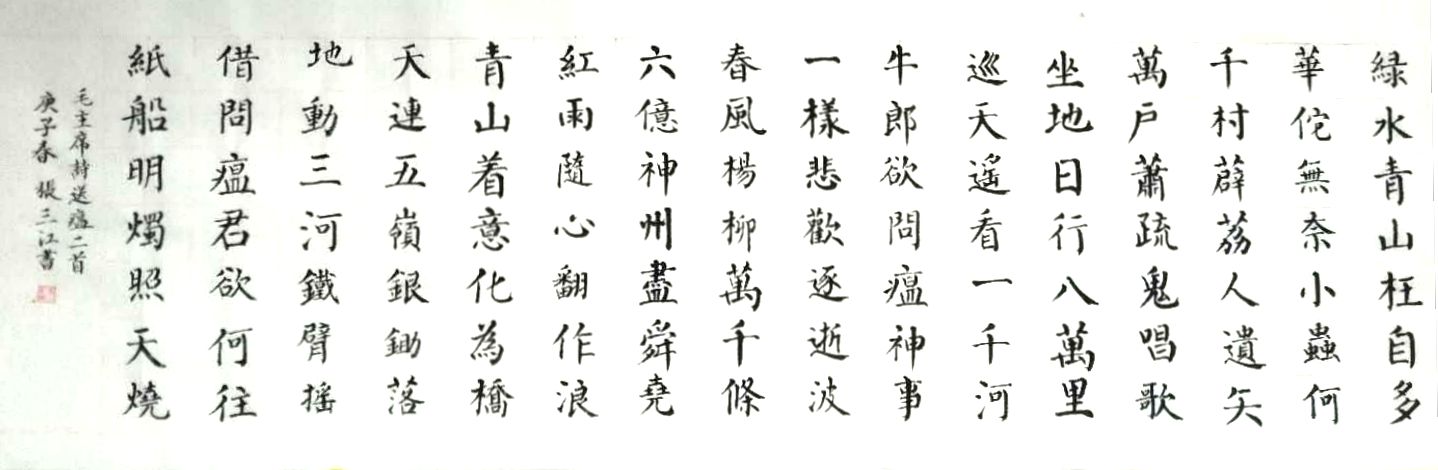 綠水青山枉自多
華佗無奈小蟲何
千村薜荔人遺矢
萬戶蕭疏鬼唱歌
坐地日行八萬里
巡天遥看一千河
牛郎欲問瘟神事
一樣悲歡逐逝波
春風楊柳萬千條
六億神州盡舜堯
紅雨隨心翻作浪
青山着意化為橋
天連五嶺銀鋤落
地動三河鐵臂摇
借問瘟君欲何往
紙船明燭照天燒
毛主席詩送瘟二首
庚子春 張三江書